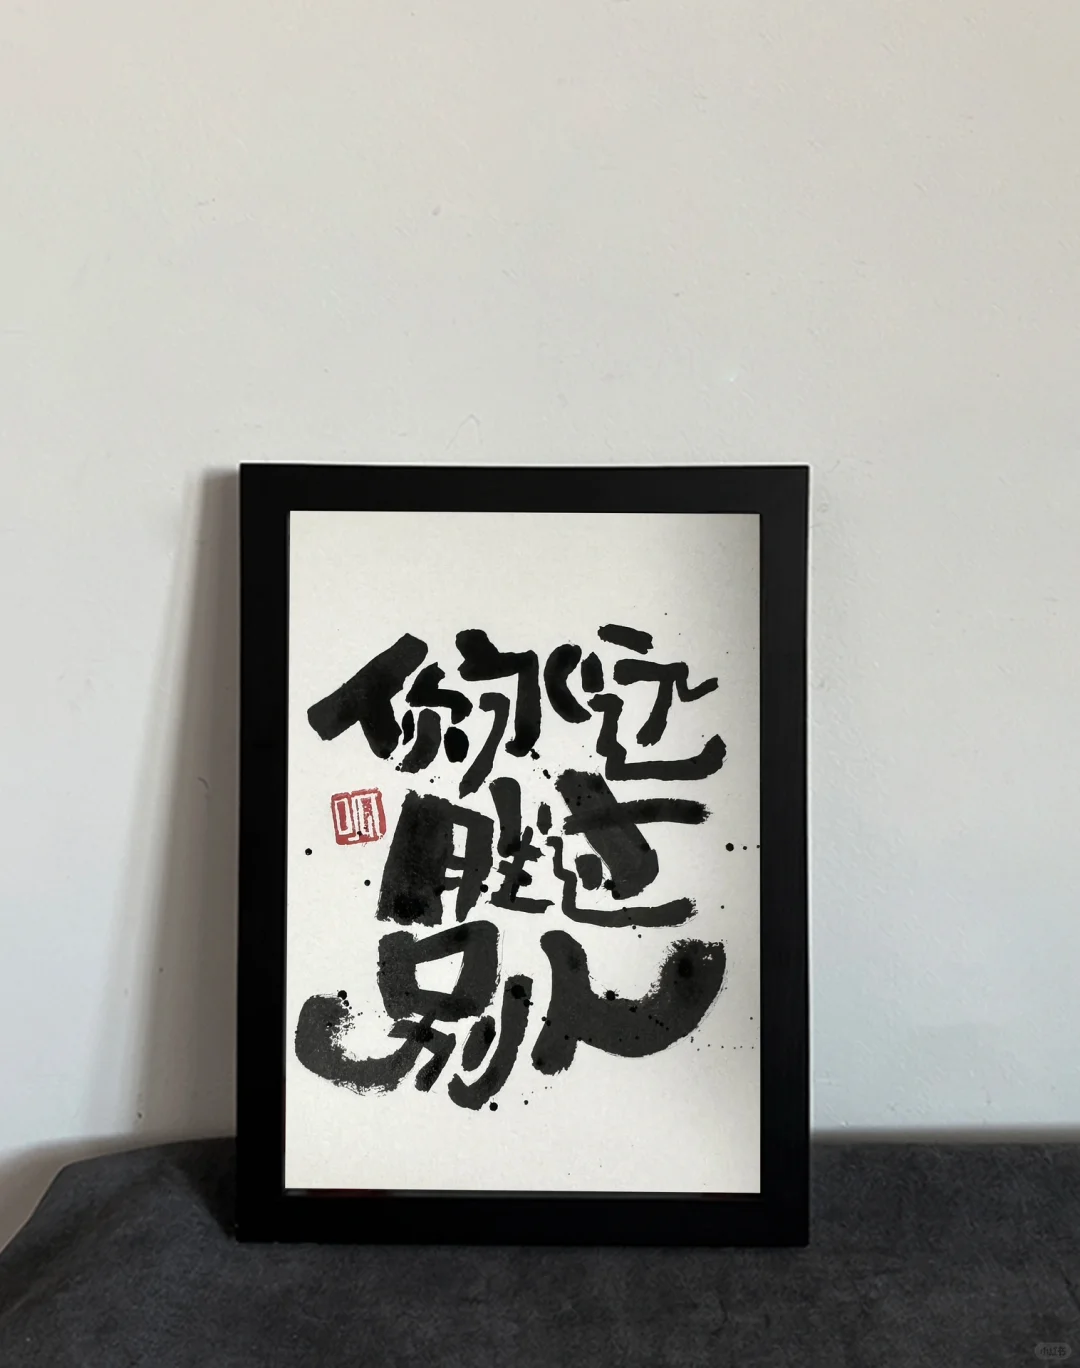 你永远
胜过
别人
小红书